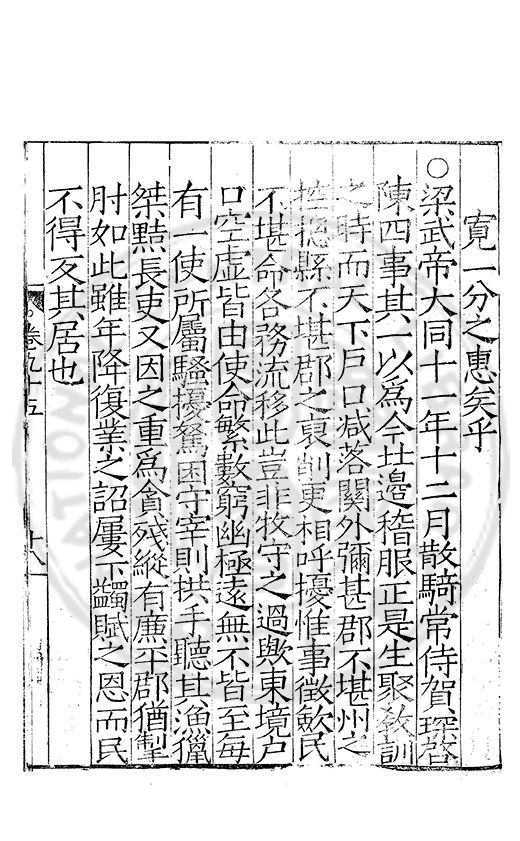 寛一分之惠矣乎
○梁武帝大同十一年十二月散騎常侍賀琛啓
陳四事其一以爲今北邊稽服正是生聚敎訓
之時而天下戶口减落關外彌甚郡不堪州之
控揔縣不堪郡之裒削更相呼擾惟事徵歛民
不堪命各務流移此豈非牧守之過歟東境戶
口空虛皆由使命繁數窮幽極遠無不皆至每
有一使所屬騷擾駑困守宰則拱手聽其漁獵
桀黠長吏又因之重爲貪殘縱有廉平郡猶掣
肘如此雖年降復業之詔屢下蠲賦之恩而民
不得反其居也
卷九十五
十八